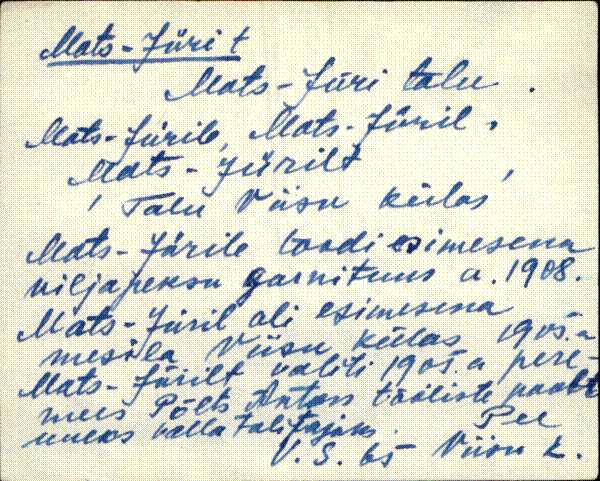 Mats-Jüri t
Mats-Jüri talu.
Mats-Jürile, Mats-Jüril,
Mats-Jürilt
' Talu Viisu külas '
Mats-Jürile toodi esimesena
viljapeksu garnituur a. 1908.
Mats-Jüril oli esimesena
mesila Viisu külas 1905. a
Mats-Jürilt valiti 1905. a pere-
mees Põlts Antons tööliste poolt
uueks vallatalitajaks.
Pee
V. S. 65 Viisu k.